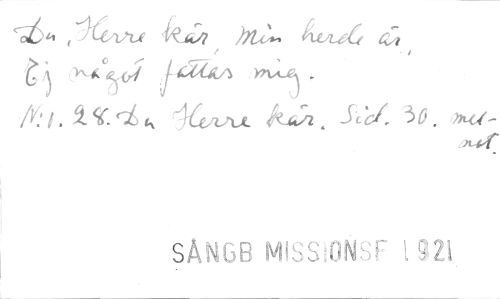 Du, Herre kär, min herde är,
Ej något fattas mig.
N:1. 28. Du Herre kär. Sid. 30. mel-
not.
SÅNGB MISSIONSF 1921